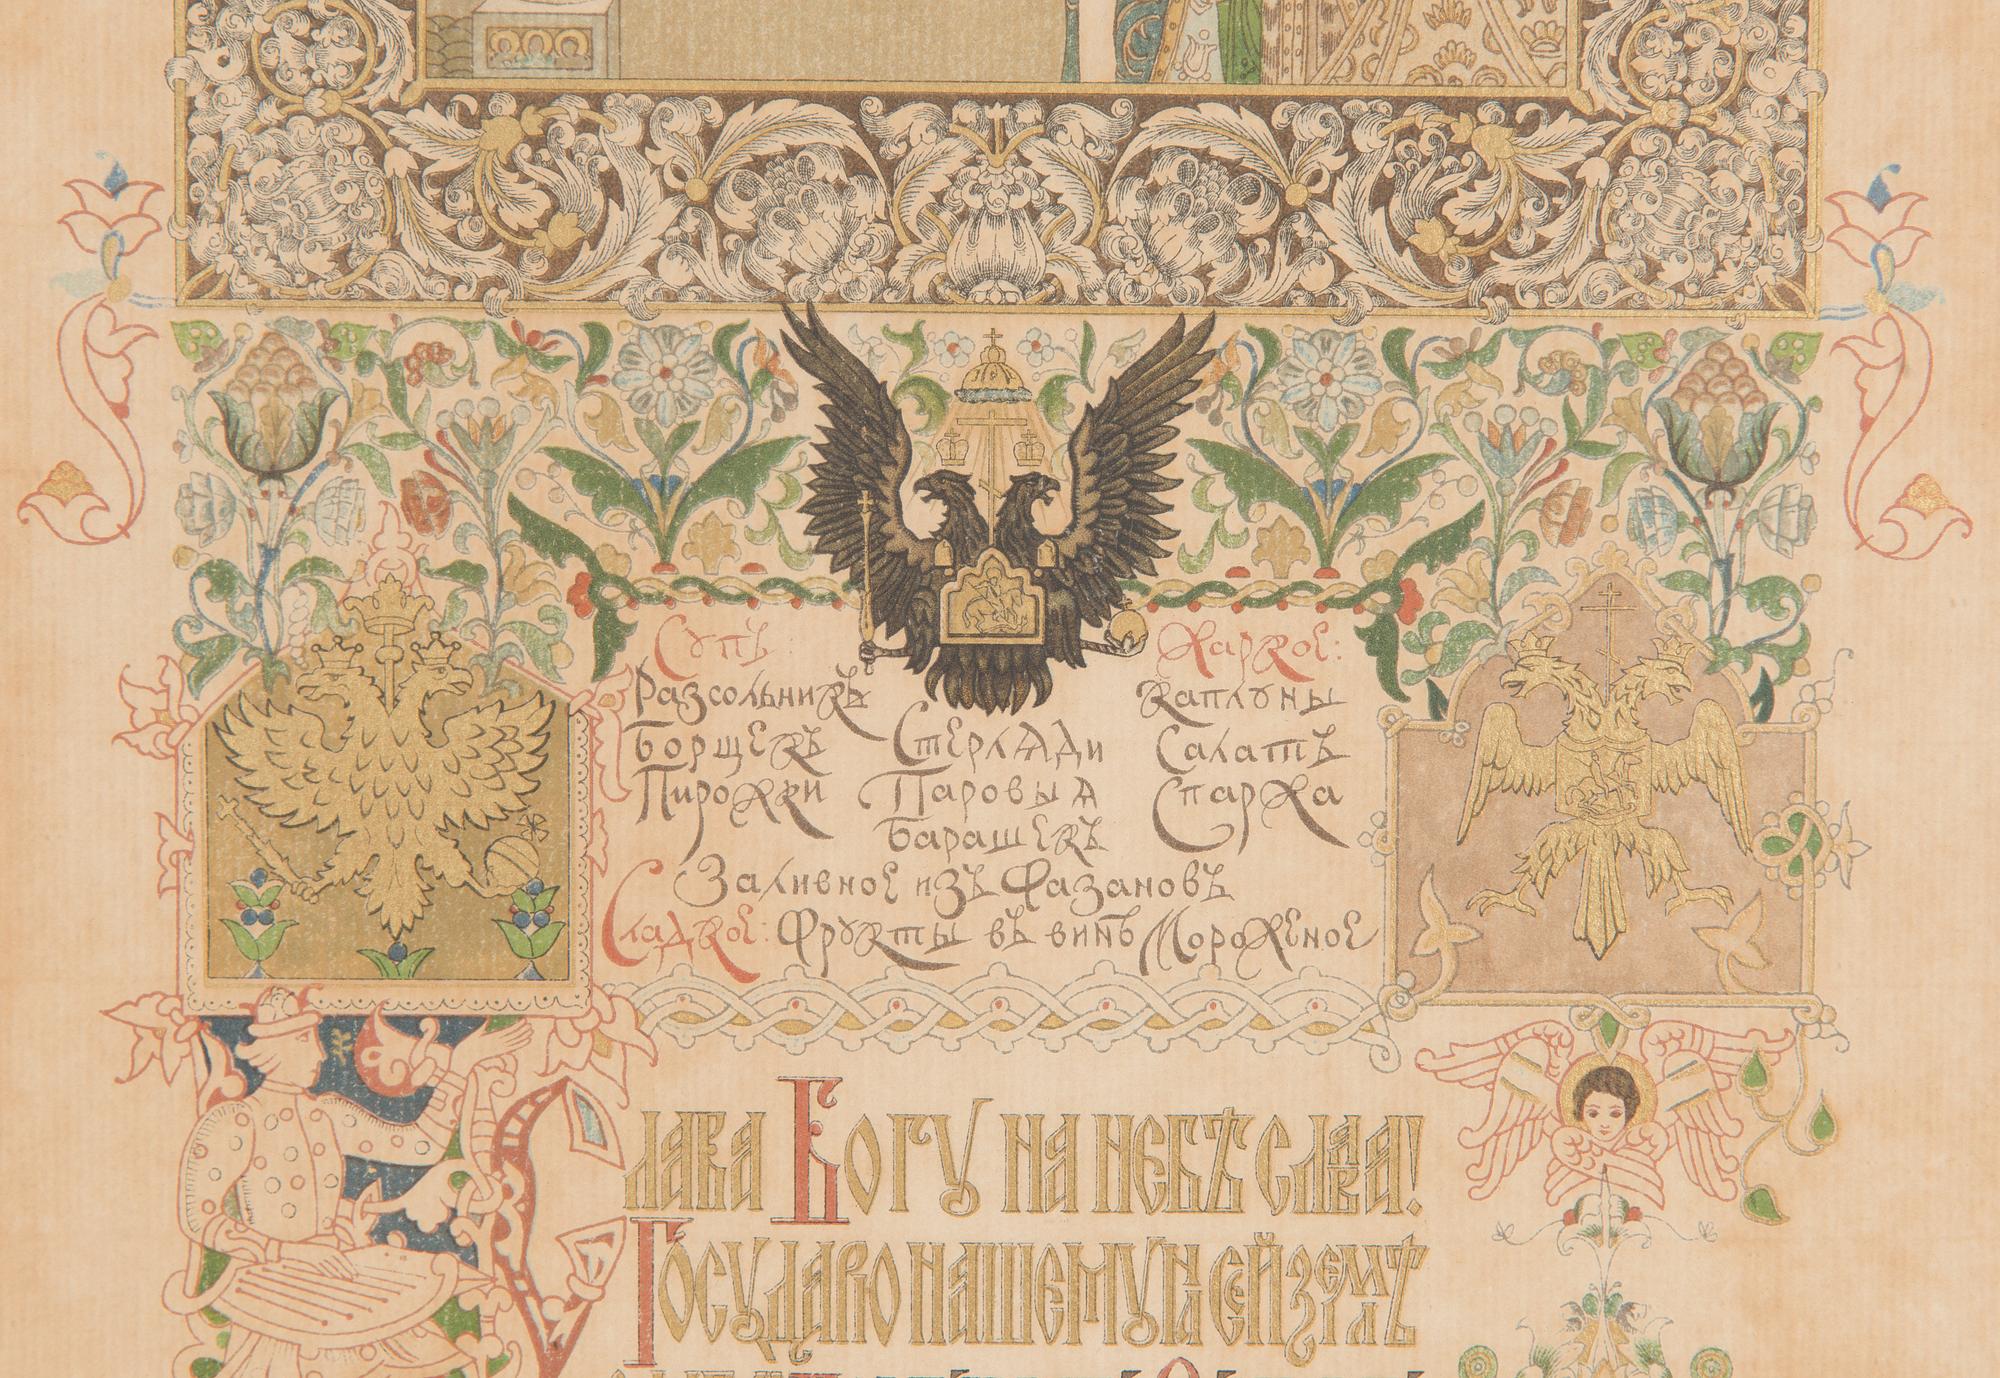 Супъ:
Разсольникъ
Борщекъ
Пирожки
Стерляди
Паровыя
Барашекъ
Жаркое:
Каплуны
Салатъ
Спаржа
Заливное изъ Фазановъ
Сладкое: Фрукты въ винѣ Мороженое
Слава Богу на небѣ слава!
Государю нашему на сей землѣ